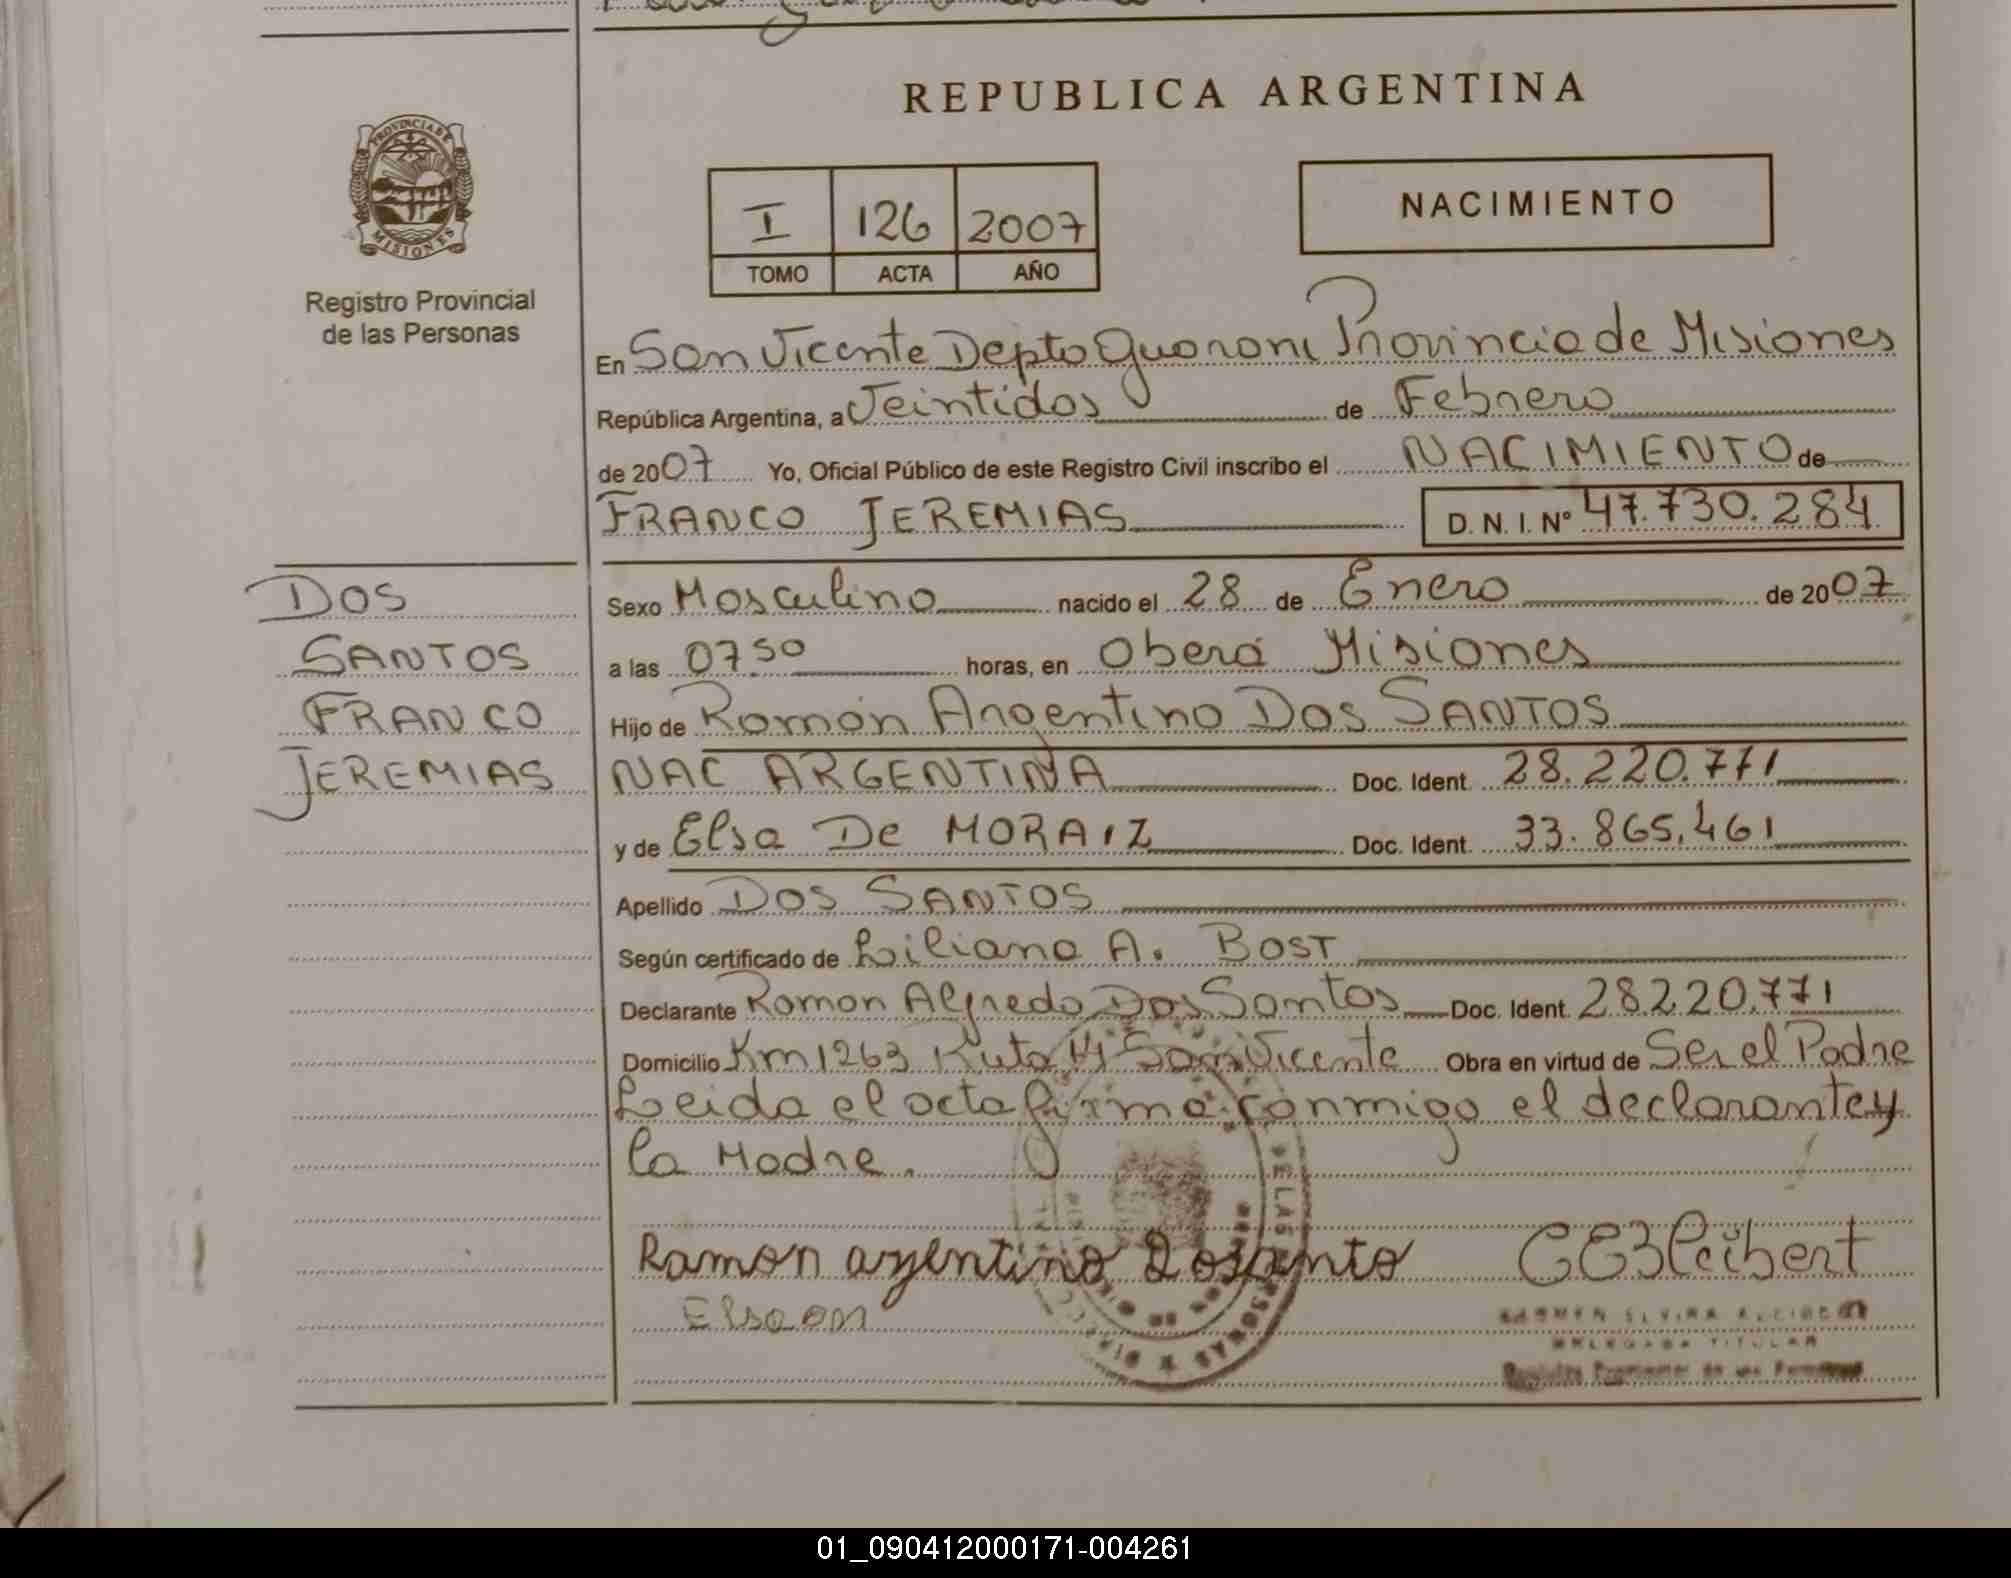 REPUBLICA ARGENTINA
PROVINCIA DE
MISIONES
Registro Provincial
de las Personas
I 126 2007
TOMO ACTA AÑO
NACIMIENTO
En San Vicente Depto Guarani Provincia de Misiones
República Argentina, a Veintidos de Febrero
de 2007 Yo, Oficial Público de este Registro Civil inscribo el NACIMIENTO de
FRANCO JEREMIAS D. N. I. Nº 47.730.284
DOS
SANTOS
FRANCO
JEREMIAS
Sexo Masculino nacido el 28 de Enero de 2007
a las 0750 horas, en Oberá Misiones
Hijo de Ramón Argentino Dos SANTOS
NAC ARGENTINA Doc. Ident. 28.220.771
y de Elsa De MORAIZ Doc. Ident. 33.865.461
Apellido DOS SANTOS
Según certificado de Liliana A. BOST
Declarante Ramon Alfredo Dos Santos Doc. Ident. 28.220.771
Domicilio Km 1263 Ruta 14 San Vicente Obra en virtud de Ser el Padre
Leida el acta firma conmigo el declarante y
la Madre.
Ramon argentino Dosanto
DE LAS PERSONAS
DELEGADA TITULAR
Registro Provincial de las Personas
01_090412000171-004261